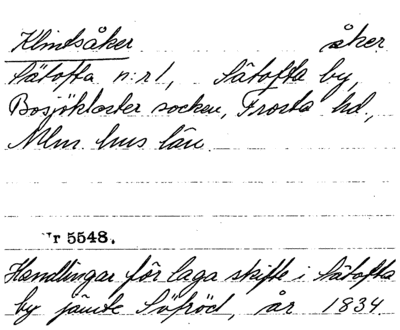 Klindsåker åker
Sätofta n:r 1, Sätofta by,
Bosjökloster socken, Frosta hd.,
Mlm hus län
Nr 5548.
Handlingar för laga skifte i Sätofta
by jämte Söfröd, år 1834.